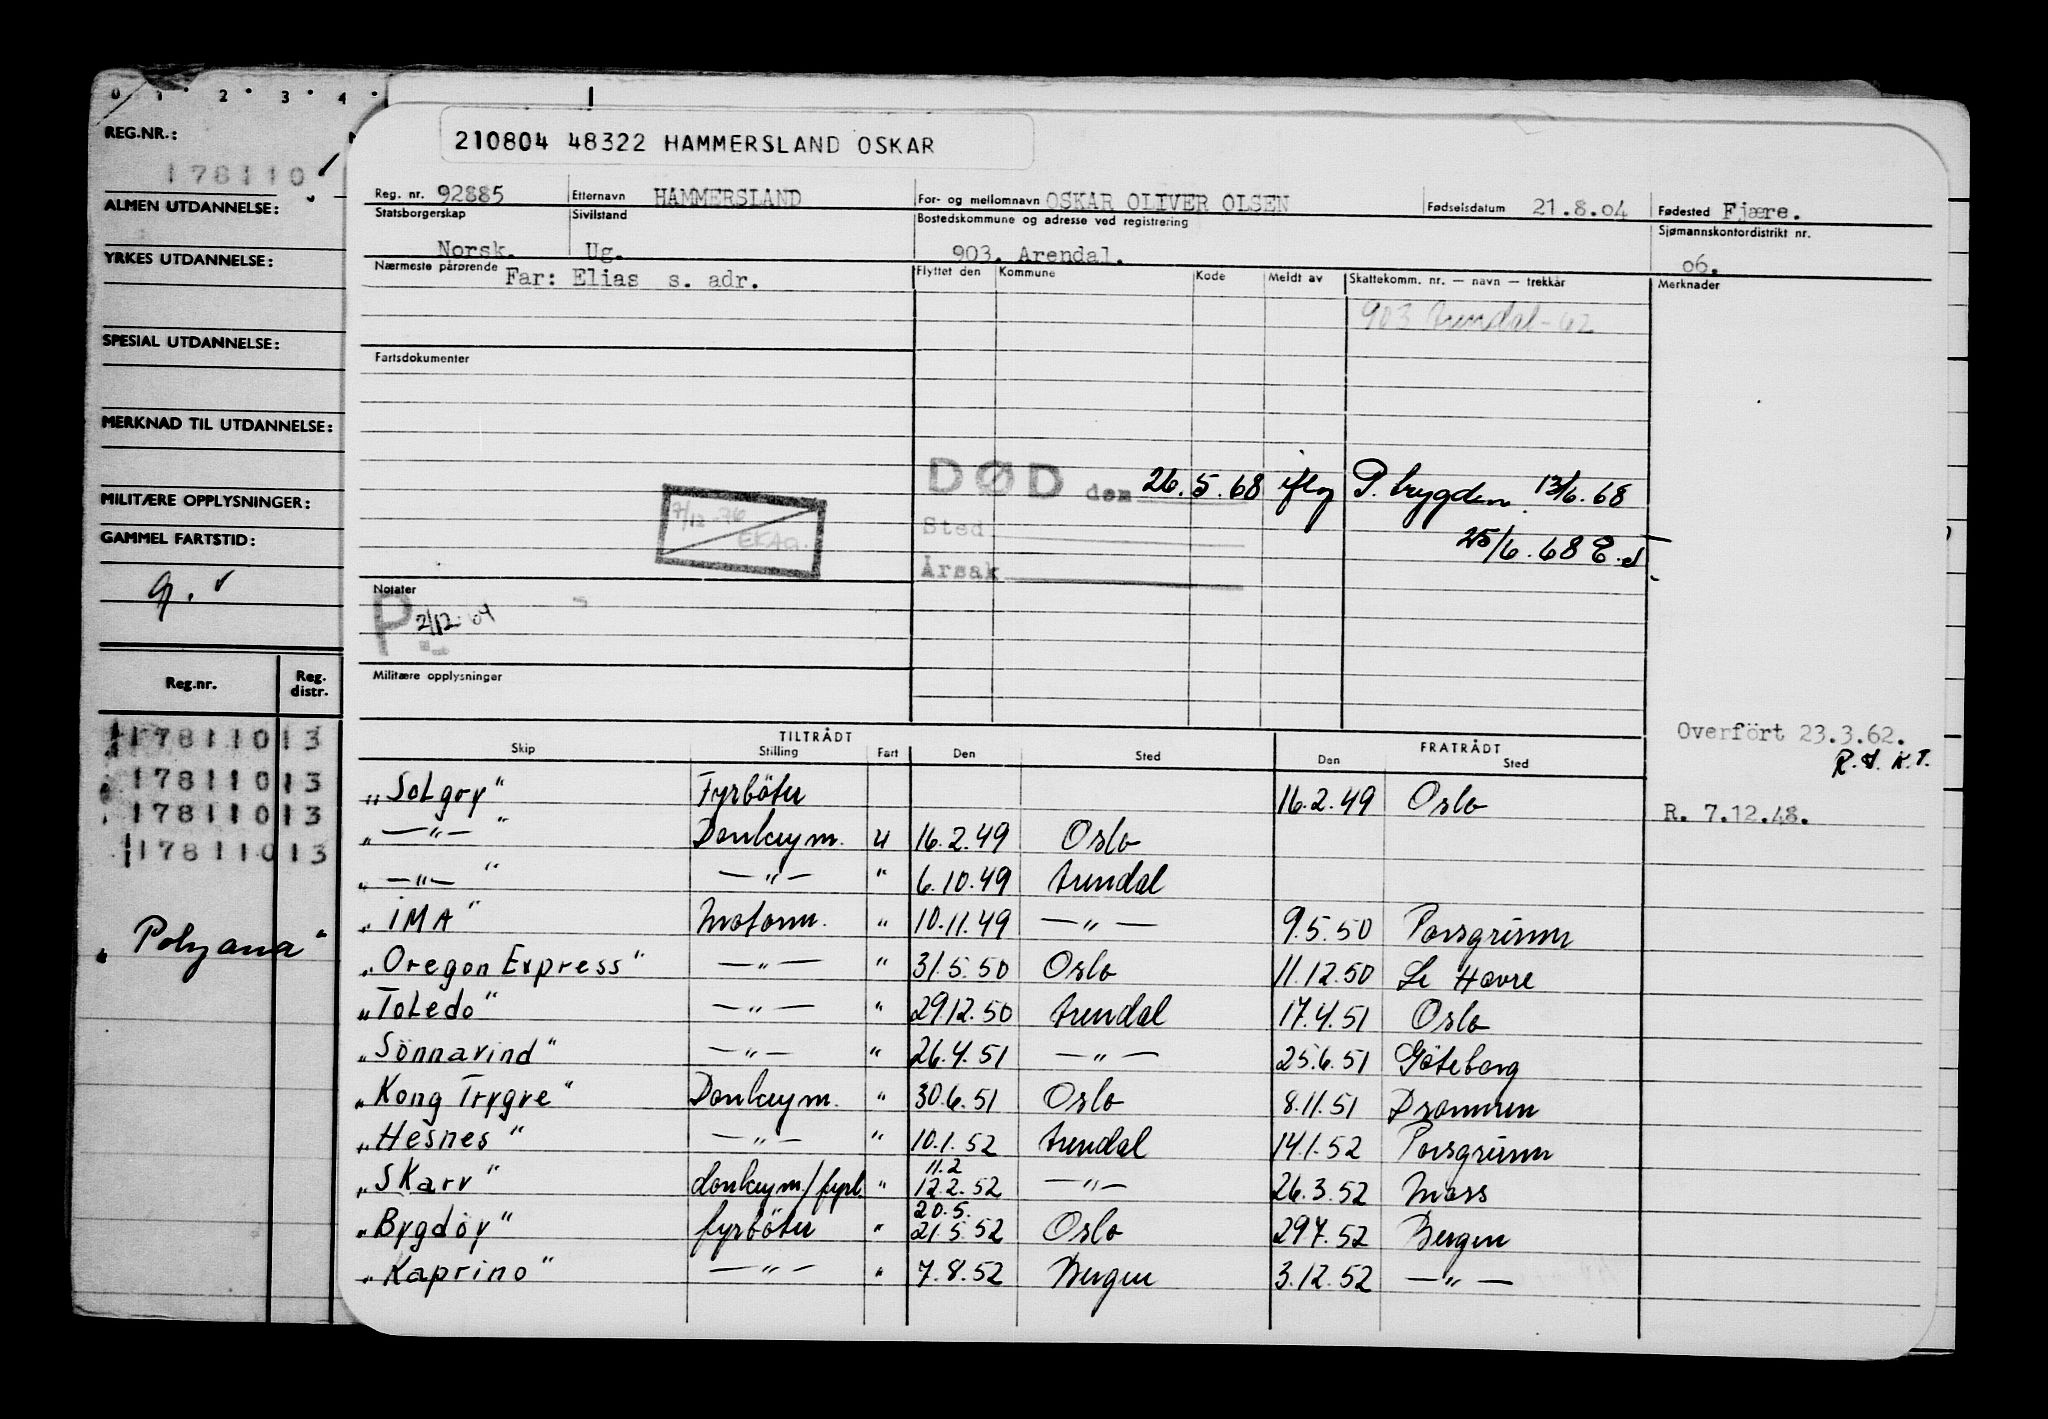 0 1 2 3 4
REG.NR.:
178110
ALMEN UTDANNELSE:
YRKES UTDANNELSE:
SPESIAL UTDANNELSE:
MERKNAD TIL UTDANNELSE:
MILITÆRE OPPLYSNINGER:
GAMMEL FARTSTID:
Reg.nr. Reg. distr.
178110 13
178110 13
178110 13
178110 13
"Polyana"
210804 48322 HAMMERSLAND OSKAR
Reg. nr. 92885 Etternavn HAMMERSLAND For- og mellomnavn OSKAR OLIVER OLSEN Fødselsdatum 21.8.04 Fødested Fjære.
Statsborgerskap Sivilstand Bostedskommune og adresse ved registrering Sjømannskontordistrikt nr.
Norsk. Ug. 903. Arendal. 06.
Nærmeste pårørende Far: Elias s. adr. Flyttet den Kommune Kode Meldt av Skattekomm. nr. — navn — trekkår Merknader
903 Arendal-62
Fartsdokumenter
DØD den 26.5.68 iflg P. trygden 13/6.68
Sted 25/6.68 E.J.
Årsak
7/12-76
EKAG.
Notater
P 2/12-64
Militære opplysninger
Overfört 23.3.62.
R. 7.12.48.
TILTRÅDT FRATRÅDT
Skip Stilling Fart Den Sted Den Sted
"Solgry" Fyrböter 16.2.49 Oslo
" —"— " Donkeym. U 16.2.49 Oslo
" —"— " —"— " 6.10.49 Arendal
"IMA" Motorm. " 10.11.49 —"— 9.5.50 Porsgrunn
"Oregon Express" —"— " 31.5.50 Oslo 11.12.50 Le Havre
"Toledo" —"— " 29.12.50 Arendal 17.4.51 Oslo
"Sönnavind" —"— " 26.4.51 —"— 25.6.51 Göteborg
"Kong Trygve" Donkeym. " 30.6.51 Oslo 8.11.51 Drammen
"Hesnes" —"— " 10.1.52 Arendal 14.1.52 Porsgrunn
11.2
"Skarv" donkeym/fyrb. " 12.2.52 —"— 26.3.52 Moss
20.5.
"Bygdöy" fyrböter " 21.5.52 Oslo 29.7.52 Bergen
"Kaprino" —"— " 7.8.52 Bergen 3.12.52 —"—